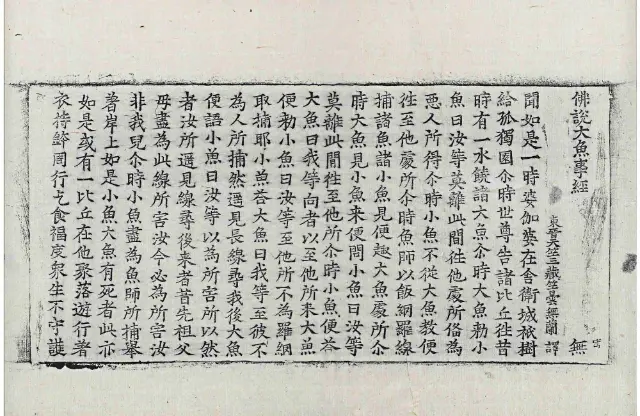 佛說大魚事經 無
東晉天竺三藏竺曇無蘭 譯
聞如是一時婆伽婆在舍衛城祇樹
給孤獨園尒時世尊告諸比丘往昔
時有一水饒諸大魚尒時大魚勅小
魚曰汝等莫離此間往他處所俻為
惡人所得尒時小魚不從大魚教便
往至他處所尒時魚師以飯網羅線
捕諸魚諸小魚見便趣大魚處所尒
時大魚見小魚来便問小魚曰汝等
莫離此間往至他所尒時小魚便荅
大魚曰我等向者以至他所来大魚
便勅小魚曰汝等至他所不為羅網
取捕耶小魚荅大魚曰我等至彼不
為人所捕然遥見長線尋我後大魚
便語小魚曰汝等以為所害所以然
者汝所遥見線尋後来者昔先祖父
母盡為此線所害汝今必為所害汝
非我兒尒時小魚盡為魚師所捕舉
著岸上如是小魚大魚有死者此亦
如是或有一比丘在他聚落遊行著
衣持鉢周行乞食福度衆生不守護